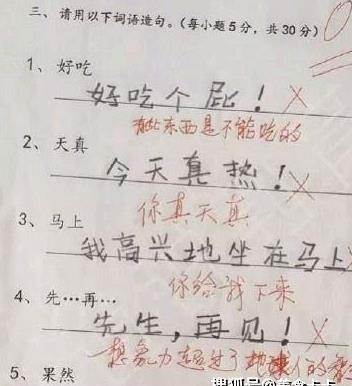 三、请用以下词语造句。(每小题5分,共30分)
1、好吃
好吃个屁!
有些东西是不能吃的
2、天真
今天真热!
你真天真
3、马上
我高兴地坐在马上
你给我下来
4、先…再…
先生,再见!
想象力超过了地球人的
5、果然